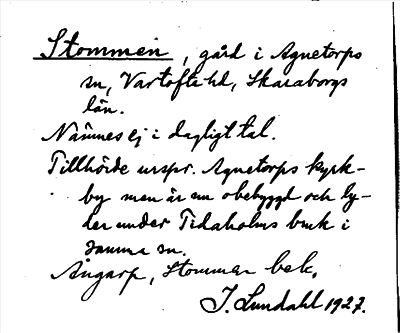 Stommen, gård i Agnetorps
sn, Vartofta hd, Skaraborgs
län.
Nämnes ej i dagligt tal.
Tillhörde urspr. Agnetorps kyrk-
by men är nu obebyggd och ly-
der under Tidaholms bruk i
samma sn.
Ångarp, Stommen bek.
J. Lundahl 1927.